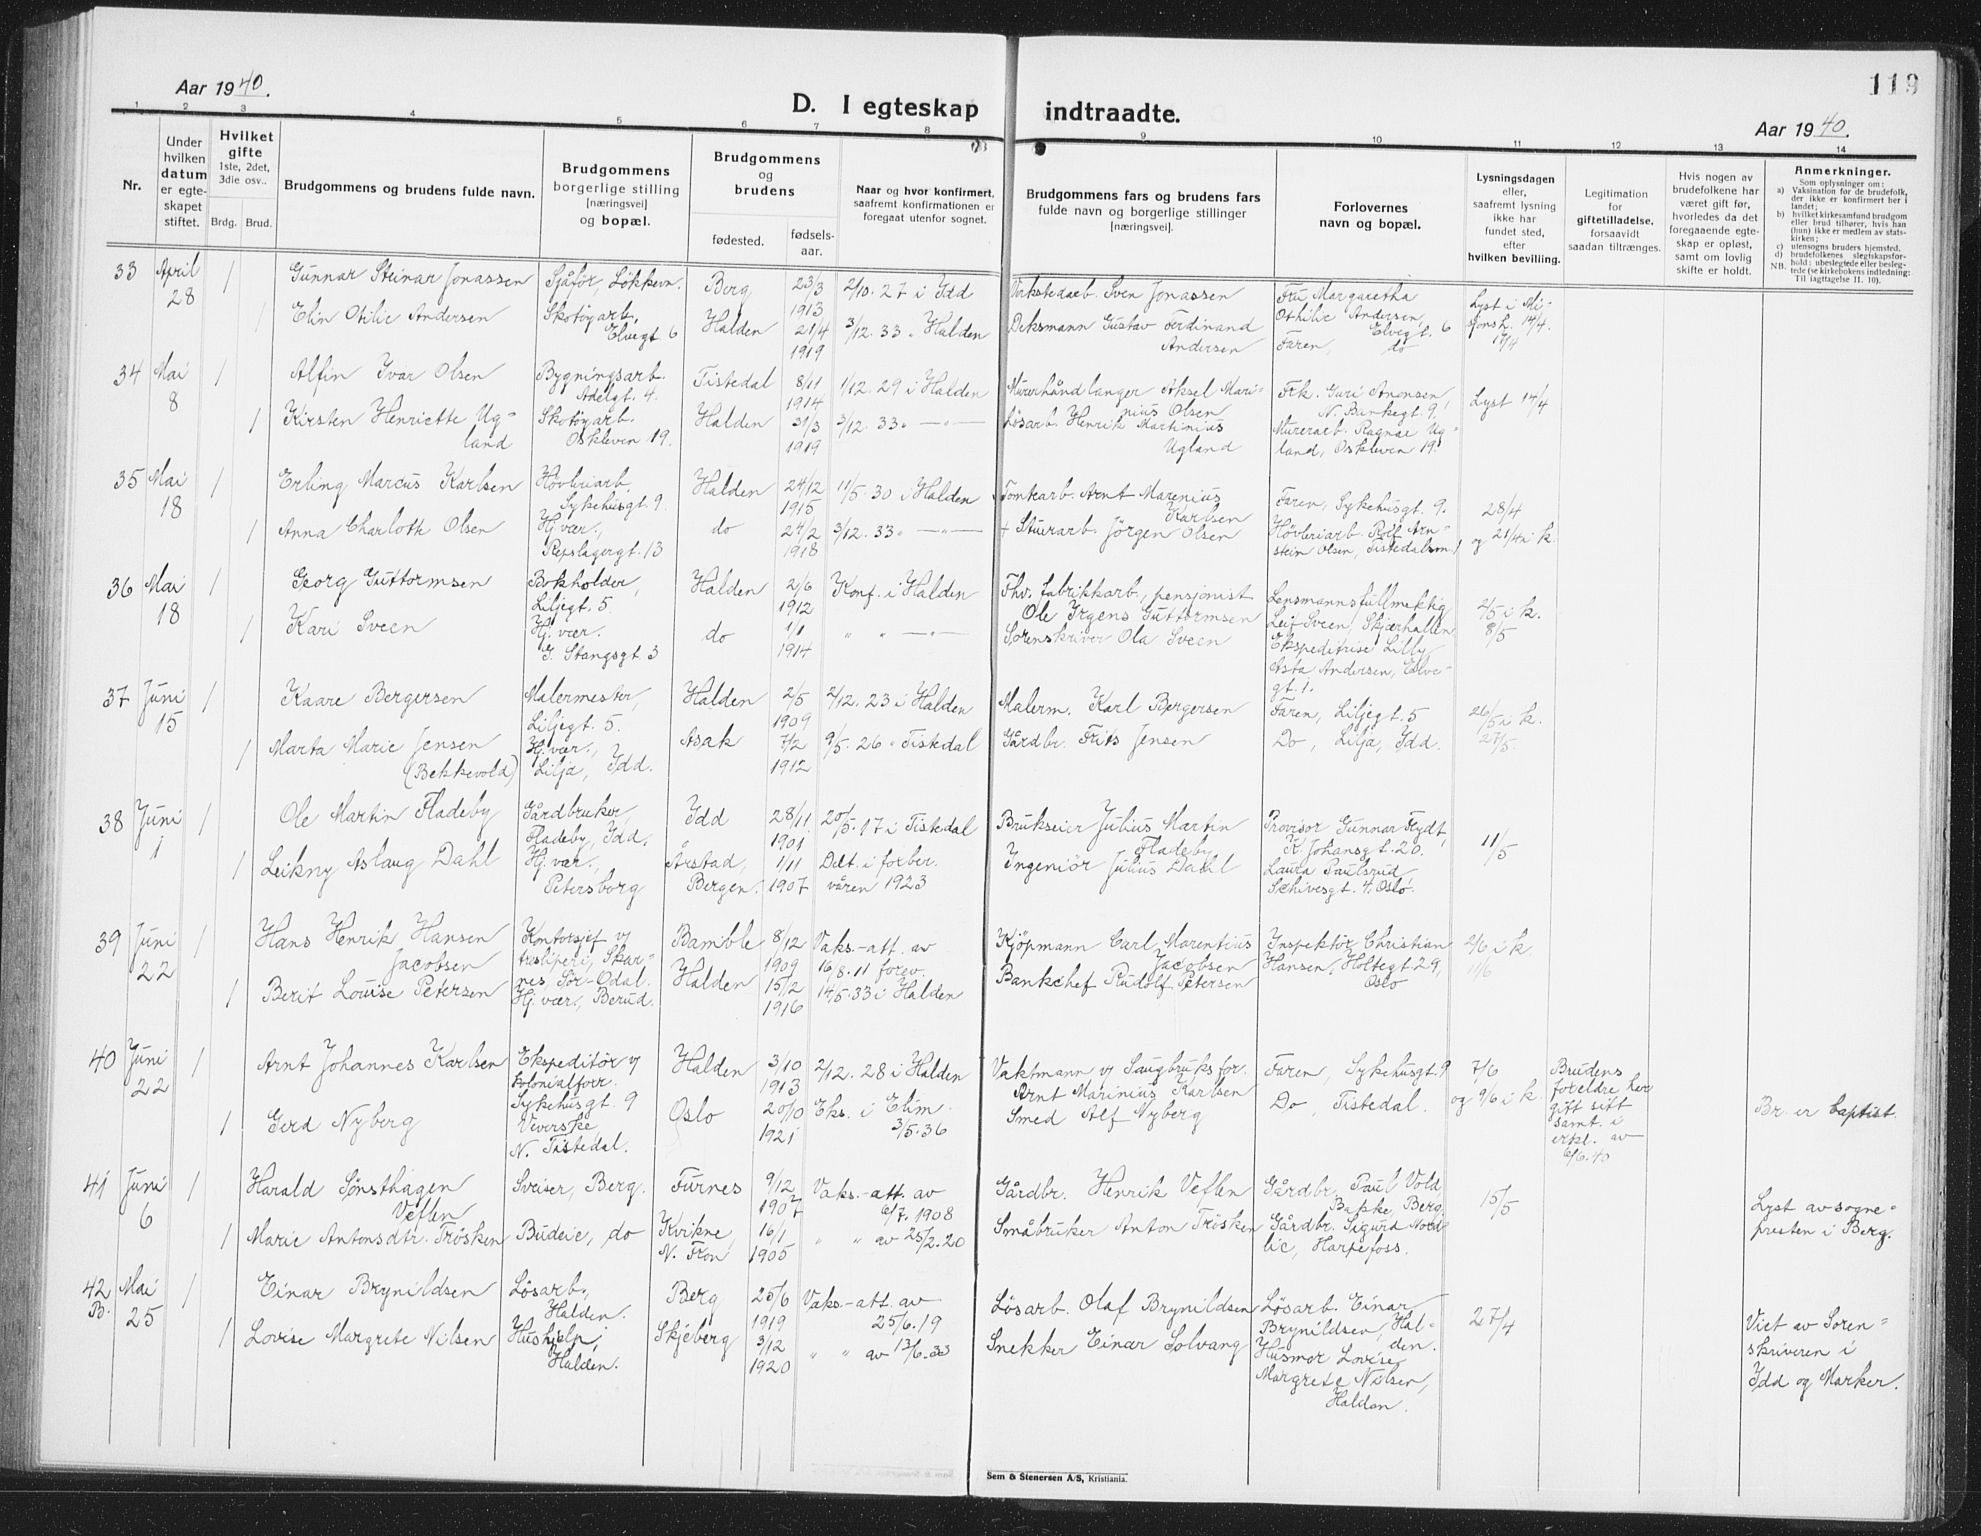 119
Aar 1940.
D. I egteskap indtraadte.
Aar 1940.
1 2 3 4 5 6 7 8 9 10 11 12 13 14
Nr.
Under hvilken datum er egteskapet stiftet.
Hvilket gifte
1ste, 2det, 3die osv..
Brdg. Brud.
Brudgommens og brudens fulde navn.
Brudgommens borgerlige stilling [næringsvei] og bopæl.
Brudgommens og brudens
fødested. fødselsaar.
Naar og hvor konfirmert, saafremt konfirmationen er foregaat utenfor sognet.
Brudgommens fars og brudens fars fulde navn og borgerlige stillinger [næringsvei].
Forlovernes navn og bopæl.
Lysningsdagen eller, saafremt lysning ikke har fundet sted, efter hvilken bevilling.
Legitimation for giftetilladelse, forsaavidt saadan tiltrænges.
Hvis nogen av brudefolkene har været gift før, hvorledes da det foregaaende egteskap er opløst, samt om lovlig skifte er holdt.
Anmerkninger.
Som oplysninger om:
a) Vaksination før de brudefolk, der ikke er konfirmert her i landet;
b) hvilket kirkesamfund brudgom eller brud tilhører, hvis han (hun) ikke er medlem av statskirken;
c) utensogns bruders hjemsted.
d) brudefolkenes slegtskapsforhold: ubeslegtede eller beslegtede (se kirkebokens indledning:
NB. Til iagttagelse II. 10).
33 April 28 1 Gunnar Steinar Jonassen Sjåfør, Løkkevn. Berg 23/3 1913 2/10. 27 i Idd Verkstedarb. Sven Jonassen Fru Margaretha Othilie Andersen, Elvegt. 6 Lyst i Misjonsh. 14/4. 17/4
1 Elin Otilie Andersen Skotøyarb, Elvegt 6 Halden 21/4 1919 3/12. 33 " Halden Deksmann Gustav Ferdinand Andersen Faren, do
34 Mai 8 1 Alfin Ivar Olsen Bygningsarb. Adelgt. 4. Tistedal 8/11 1914 1/12. 29 i Halden Murerhåndlanger Aksel Marinius Olsen Frk. Guri Aronsen N. Bankegt. 9. Lyst 14/4
1 Kirsten Henriette Ugland Skotøyarb. Oskleven 19. Halden 31/3 1919 3/12. 33 " —"— Løsarb. Henrik Martinius Ugland Murerarb. Ragnar Ugland, Oskleven 19.
35 Mai 18 1 Erling Marcus Karlsen Høvleriarb, Sykehusgt. 9 Halden 24/12 1915 11/5. 30 i Halden Tomtearb. Arnt Marenius Karlsen Faren, Sykehusgt. 9. 28/4
1 Anna Charloth Olsen Hj. vær., Repslagergt. 13 do 24/2 1918 3/12. 33 " —"— + Stuerarb. Jörgen Olsen Høvleriarb. Rolf Arnstein Olsen, Tistedalsvn. 1 og 21/4 i k.
36 Mai 18 1 Georg Guttormsen Bokholder, Liljegt. 5. Halden 2/6 1912 Konf. i Halden Fhv. fabrikkarb., pensjonist Ole Irgens Guttormsen Lensmannsfullmektig Leif Sveen, Skjærhallen 2/5 i k. 8/5
1 Kari Sveen Hj. vær. G. Stangsgt. 3 do 1/1 1914 " " —"— Sorenskriver Ola Sveen Ekspeditrise Lilly Asta Andersen, Elvegt. 1.
37 Juni 15 1 Kaare Bergersen Malermester, Liljegt. 5. Halden 2/5 1909 2/12. 23 i Halden Malerm. Karl Bergersen Faren, Liljegt. 5 26/5 i k. 27/5.
1 Marta Marie Jensen (Bekkevold) Hj. vær., Lilja, Idd. Asak 7/2 1912 9/5. 26 " Tistedal Gårdbr. Frits Jensen Do, Lilja, Idd.
38 Juni 1 1 Ole Martin Fladeby Gårdbruker, Fladeby, Idd. Idd 28/11 1901 20/5. 17 i Tistedal Brukseier Julius Martin Fladeby Provisor Gunnar Frydt, K. Johansgt. 20. 11/5
1 Leikny Aslaug Dahl Hj. vær., Petersborg Årstad, Bergen. 1/11 1907 Delt. i forber. våren 1923 Ingeniör Julius Dahl Laura Paulsrud Schivesgt. 4. Oslo.
39 Juni 22 1 Hans Henrik Hansen Jacobsen Kontorsjef v/ tresliperi, Skarnes, Sør-Odal. Bamble 8/12 1909 Vaks.-att. av 16/8. 11 forev. Kjøpmann Carl Marentius Jacobsen Inspektör Christian Hansen, Holtegt. 29, Oslo 2/6 i k. 11/6
1 Berit Louise Petersen Hj. vær., Berud. Halden 15/2 1916 14/5. 33 i Halden Bankchef Rudolf Petersen
40 Juni 22 1 Arnt Johannes Karlsen Ekspeditör v/ kolonialforr. Sykehusgt. 9 Halden 3/10 1913 2/12. 28 i Halden Vaktmann v/ Saugbruksfor. Arnt Marinius Karlsen Faren, Sykehusgt. 9 7/6 Brudens foreldre har gitt sitt samt. i erkl. av 6/6. 40
1 Gerd Nyberg Veverske N. Tistedal. Oslo 1921 Eks. i Elim 3/5. 36 Smed Alf Nyberg Do, Tistedal. og 9/6 i k. Br. er baptist.
41 Juni 6 1 Harald Sønsthagen Veflen Sveiser, Berg. Furnes 9/12 1907 Vaks.-att. av 6/7. 1908 Gårdbr. Henrik Veflen Gårdbr. Paul Vold, Bakke, Berg. 15/5 Lyst av sognepresten i Berg.
1 Marie Antonsdtr. Trösken Budeie, do Kvikne N. Fron 16/1 1905 " " av 25/2. 20 Småbruker Anton Trösken Gårdbr. Sigurd Nordlie, Harpefoss.
42 B. Mai 25 1 Einar Brynildsen Lösarb., Halden. Berg 25/6 1919 Vaks.-att. av 25/6. 19 Lösarb. Olaf Brynildsen Lösarb. Einar Brynildsen, Halden. 27/4 Viet av Sorenskriveren i Idd og Marker.
1 Lovise Margrete Nilsen Hushjelp, Halden. Skjeberg 3/12 1920 " " av 13/6. 33 Snekker Einar Solvang Husmor Lovise Margrete Nilsen, Halden.
Sem & Stenersen A/S, Kristiania.